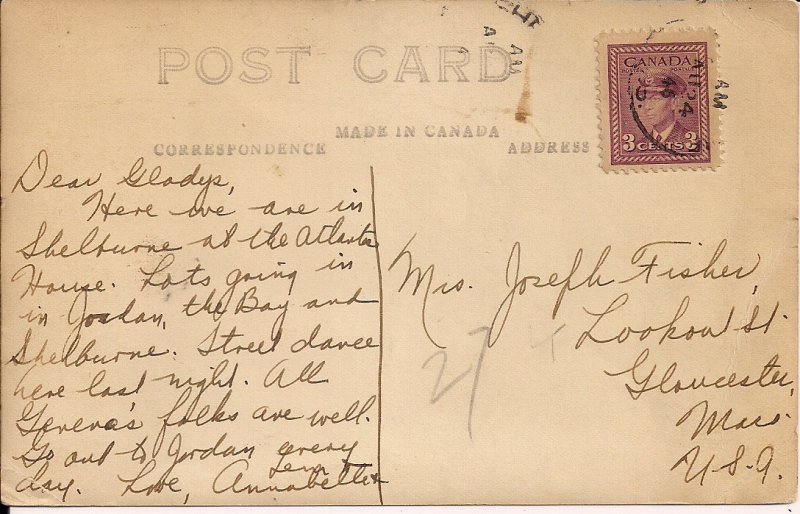 POST CARD
MADE IN CANADA
CORRESPONDENCE
ADDRESS
CANADA
POSTES POSTAGE
3 CENTS 3
AM
AU 24
AM
Dear Gladys,
Here we are in
Shelburne at the Atlantic
House. Lots going in
in Jordan, the Bay and
Shelburne. Street dance
here last night. All
Geneva's folks are well.
Go out to Jordan every
day. Love, Annabelle
Mrs. Joseph Fisher,
Lookout St.
Gloucester,
Mass.
U.S.A.
27